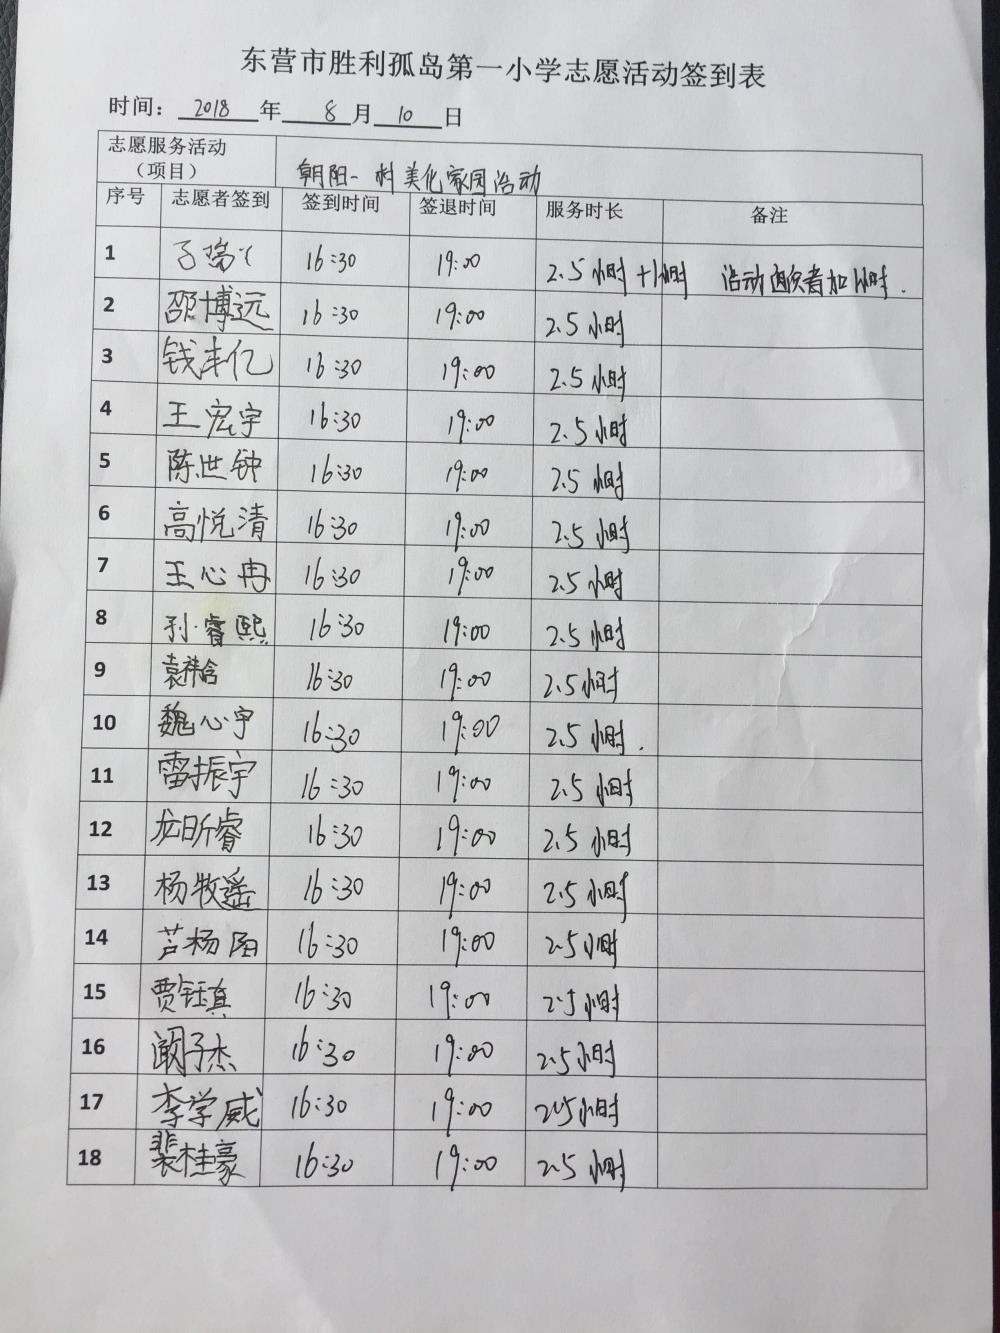 东营市胜利孤岛第一小学志愿活动签到表
时间： 2018 年 8 月 10 日
志愿服务活动（项目） 朝阳一村美化家园活动
序号 志愿者签到 签到时间 签退时间 服务时长 备注
1 16:30 19:00 2.5小时+1小时 活动者加1小时.
2 邵博远 16:30 19:00 2.5小时
3 钱丰亿 16:30 19:00 2.5小时
4 王宏宇 16:30 19:00 2.5小时
5 陈世钟 16:30 19:00 2.5小时
6 高悦清 16:30 19:00 2.5小时
7 王心冉 16:30 19:00 2.5小时
8 孙睿熙 16:30 19:00 2.5小时
9 袁祥含 16:30 19:00 2.5小时
10 魏心宇 16:30 19:00 2.5小时.
11 雷振宇 16:30 19:00 2.5小时
12 龙昕睿 16:30 19:00 2.5小时
13 杨牧遥 16:30 19:00 2.5小时
14 芦杨阳 16:30 19:00 2.5小时
15 贾钰真 16:30 19:00 2.5小时
16 阚子杰 16:30 19:00 2.5小时
17 李学威 16:30 19:00 2.5小时
18 裴桂豪 16:30 19:00 2.5小时